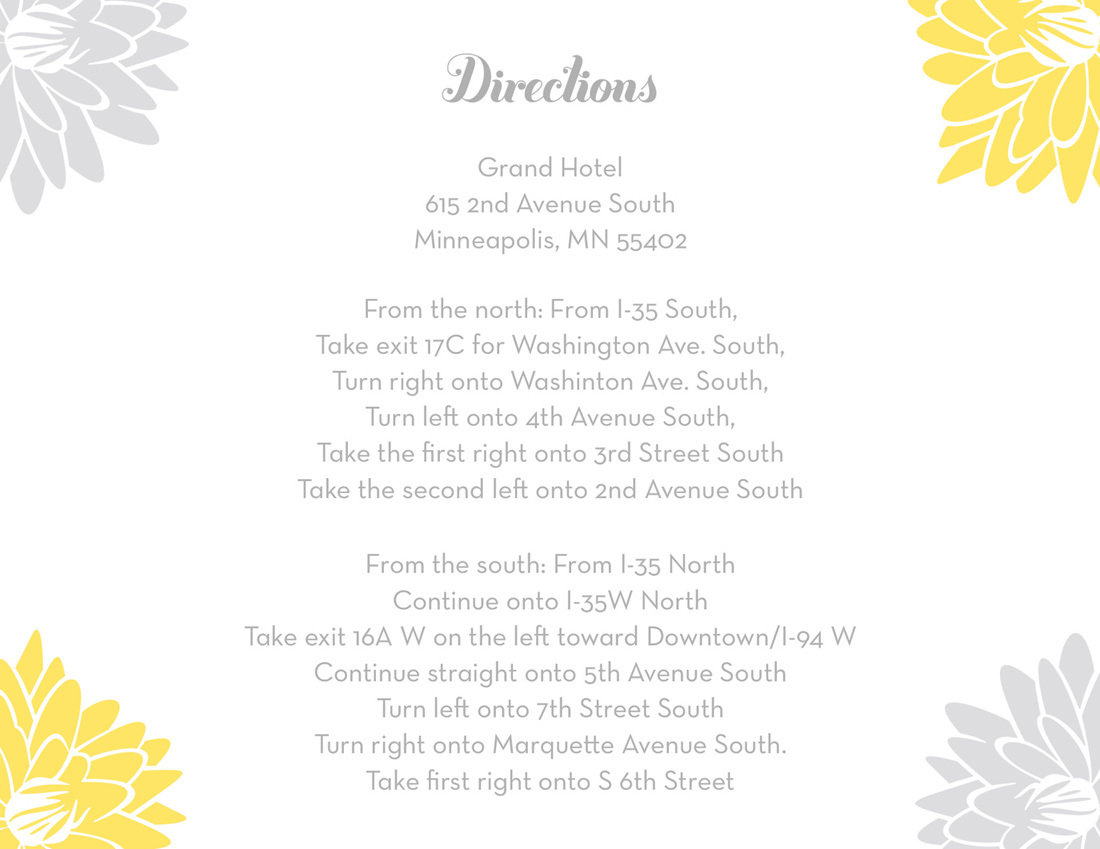 Directions
Grand Hotel
615 2nd Avenue South
Minneapolis, MN 55402
From the north: From I-35 South,
Take exit 17C for Washington Ave. South,
Turn right onto Washinton Ave. South,
Turn left onto 4th Avenue South,
Take the first right onto 3rd Street South
Take the second left onto 2nd Avenue South
From the south: From I-35 North
Continue onto I-35W North
Take exit 16A W on the left toward Downtown/I-94 W
Continue straight onto 5th Avenue South
Turn left onto 7th Street South
Turn right onto Marquette Avenue South.
Take first right onto S 6th Street